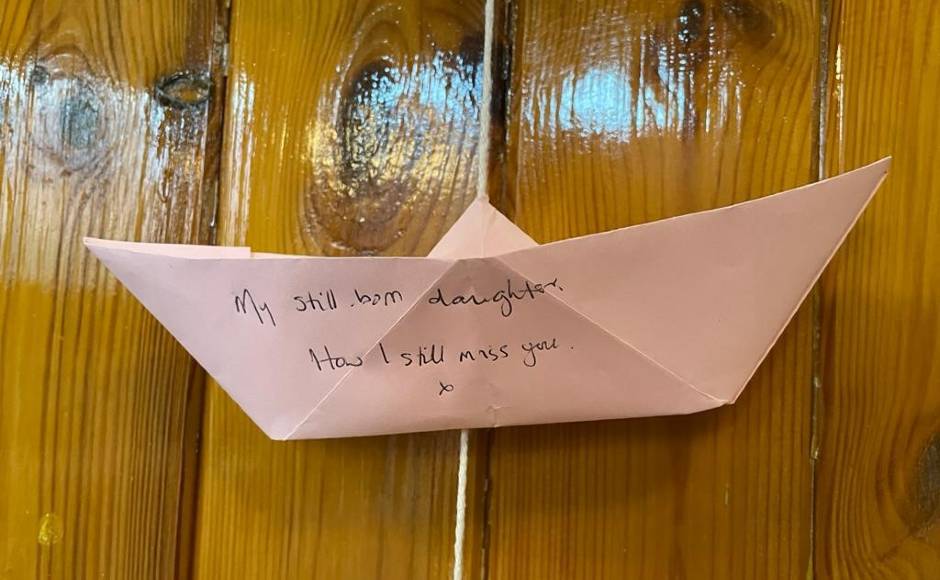 My still.born daughter.
How I still miss you.
x